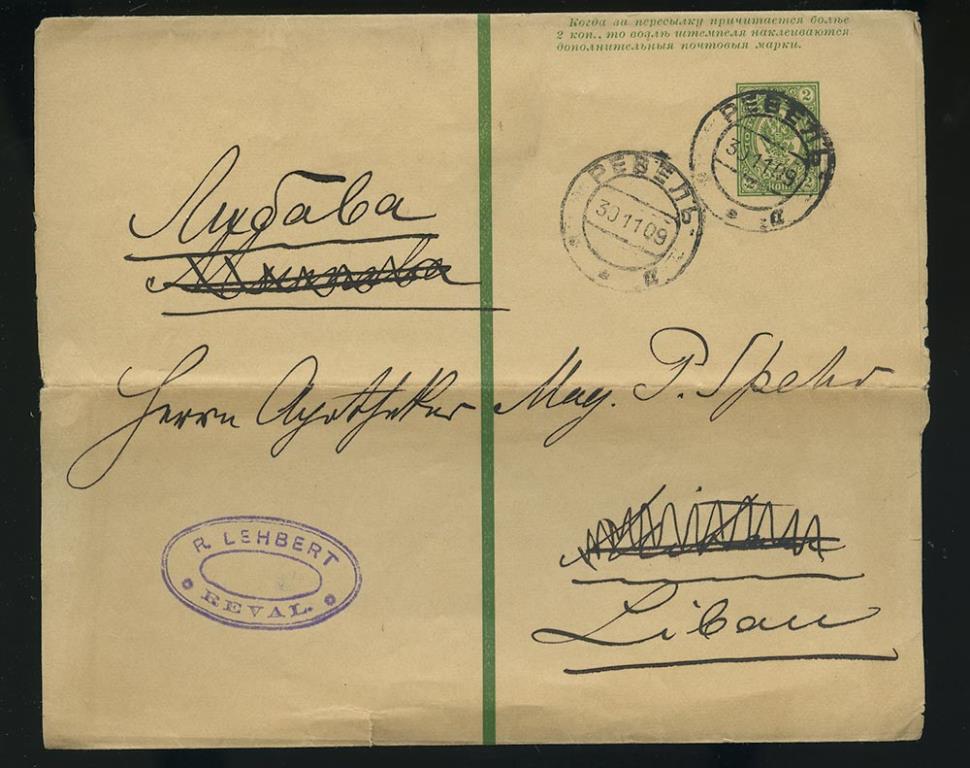 Когда за пересылку причитается болѣе
2 коп., то возлѣ штемпеля наклеиваются
дополнительныя почтовыя марки.
2
РЕВЕЛЬ
30 11 09
Д
РЕВЕЛЬ
30 11 09
Д
2
Либава
Herrn Apotheker Mag. P. Spehr
R. LEHBERT
REVAL.
Libau